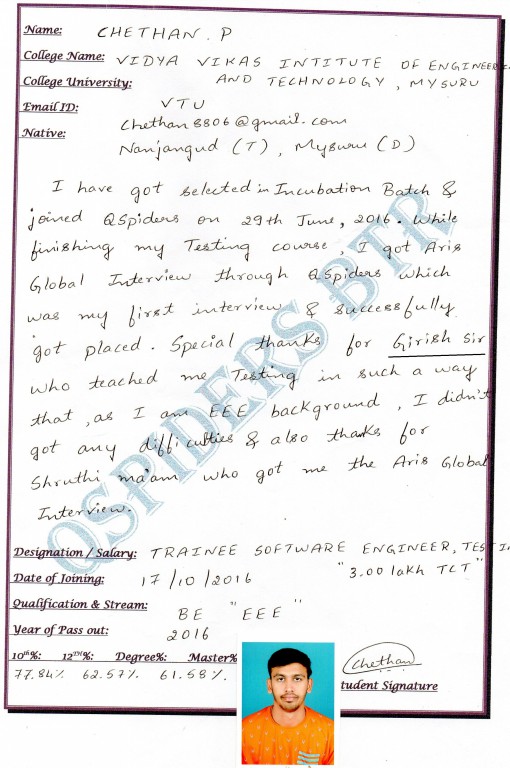 Name: CHETHAN . P
College Name: VIDYA VIKAS INTITUTE OF ENGINEERI
College University: AND TECHNOLOGY , MYSURU
Email ID: VTU
chethan8806@gmail.com
Native: Nanjangud (T) , Mysuru (D)
I have got selected in Incubation Batch &
joined QSpiders on 29th June, 2016. While
finishing my Testing course, I got Aris
Global Interview through QSpiders which
was my first interview & successfully
got placed. Special thanks for Girish Sir
who teached me Testing in such a way
that , as I am EEE background , I didn't
got any difficulties & also thanks for
Shruthi ma'am who got me the Aris Global
Interview.
QSPIDERS BTR
Designation / Salary: TRAINEE SOFTWARE ENGINEER, TESTI
Date of Joining: 17/10/2016 "3.00 lakh TCT"
Qualification & Stream: BE "EEE"
Year of Pass out: 2016
10th%: 12TH%: Degree%: Master%
77.84% 62.57% 61.58%
Chethan
tudent Signature